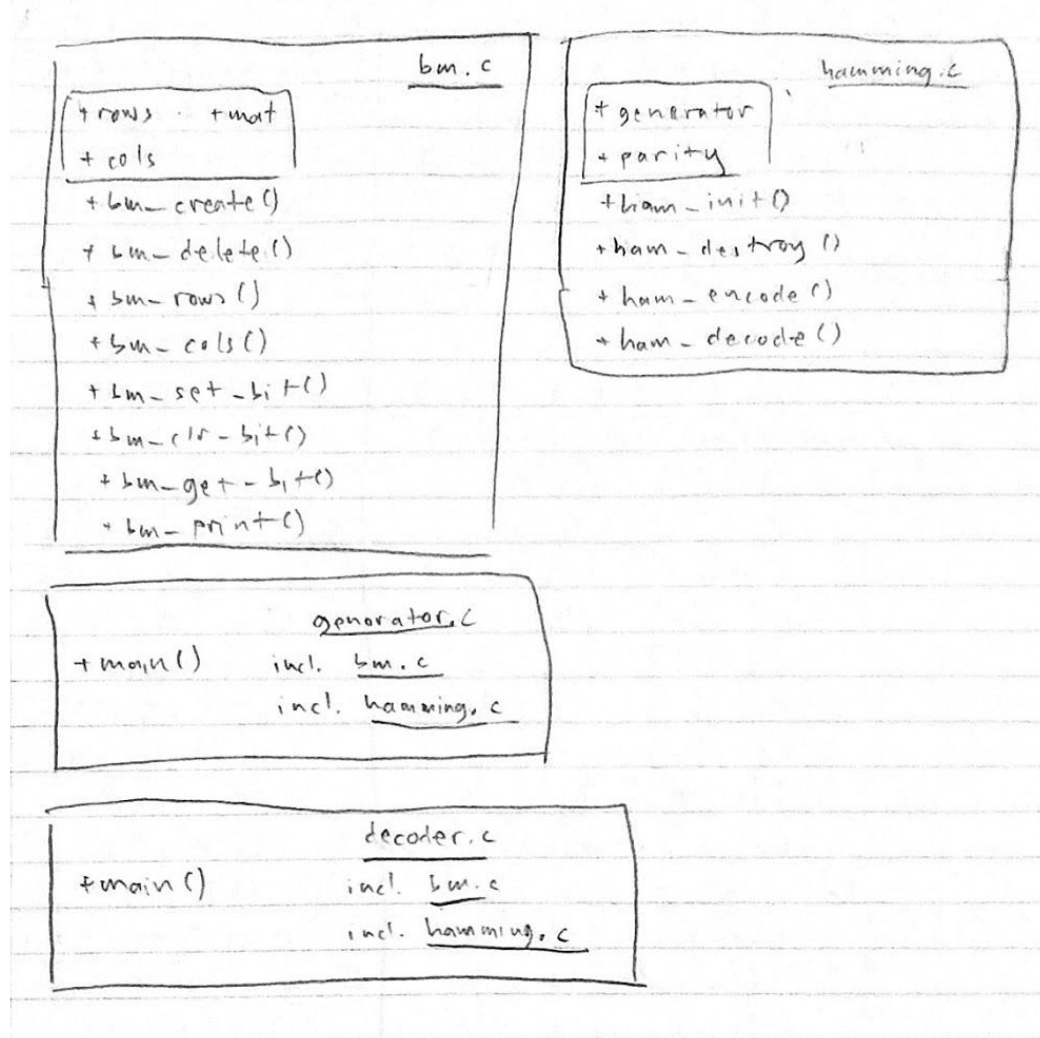 bm.c
+ rows + mat
+ cols
+ bm_create()
+ bm_delete()
+ bm_rows()
+ bm_cols()
+ bm_set_bit()
+ bm_clr_bit()
+ bm_get_bit()
+ bm_print()
hamming.c
+ generator
+ parity
+ ham_init()
+ ham_destroy()
+ ham_encode()
+ ham_decode()
generator.c
+ main() incl. bm.c
incl. hamming.c
decoder.c
+ main() incl. bm.c
incl. hamming.c